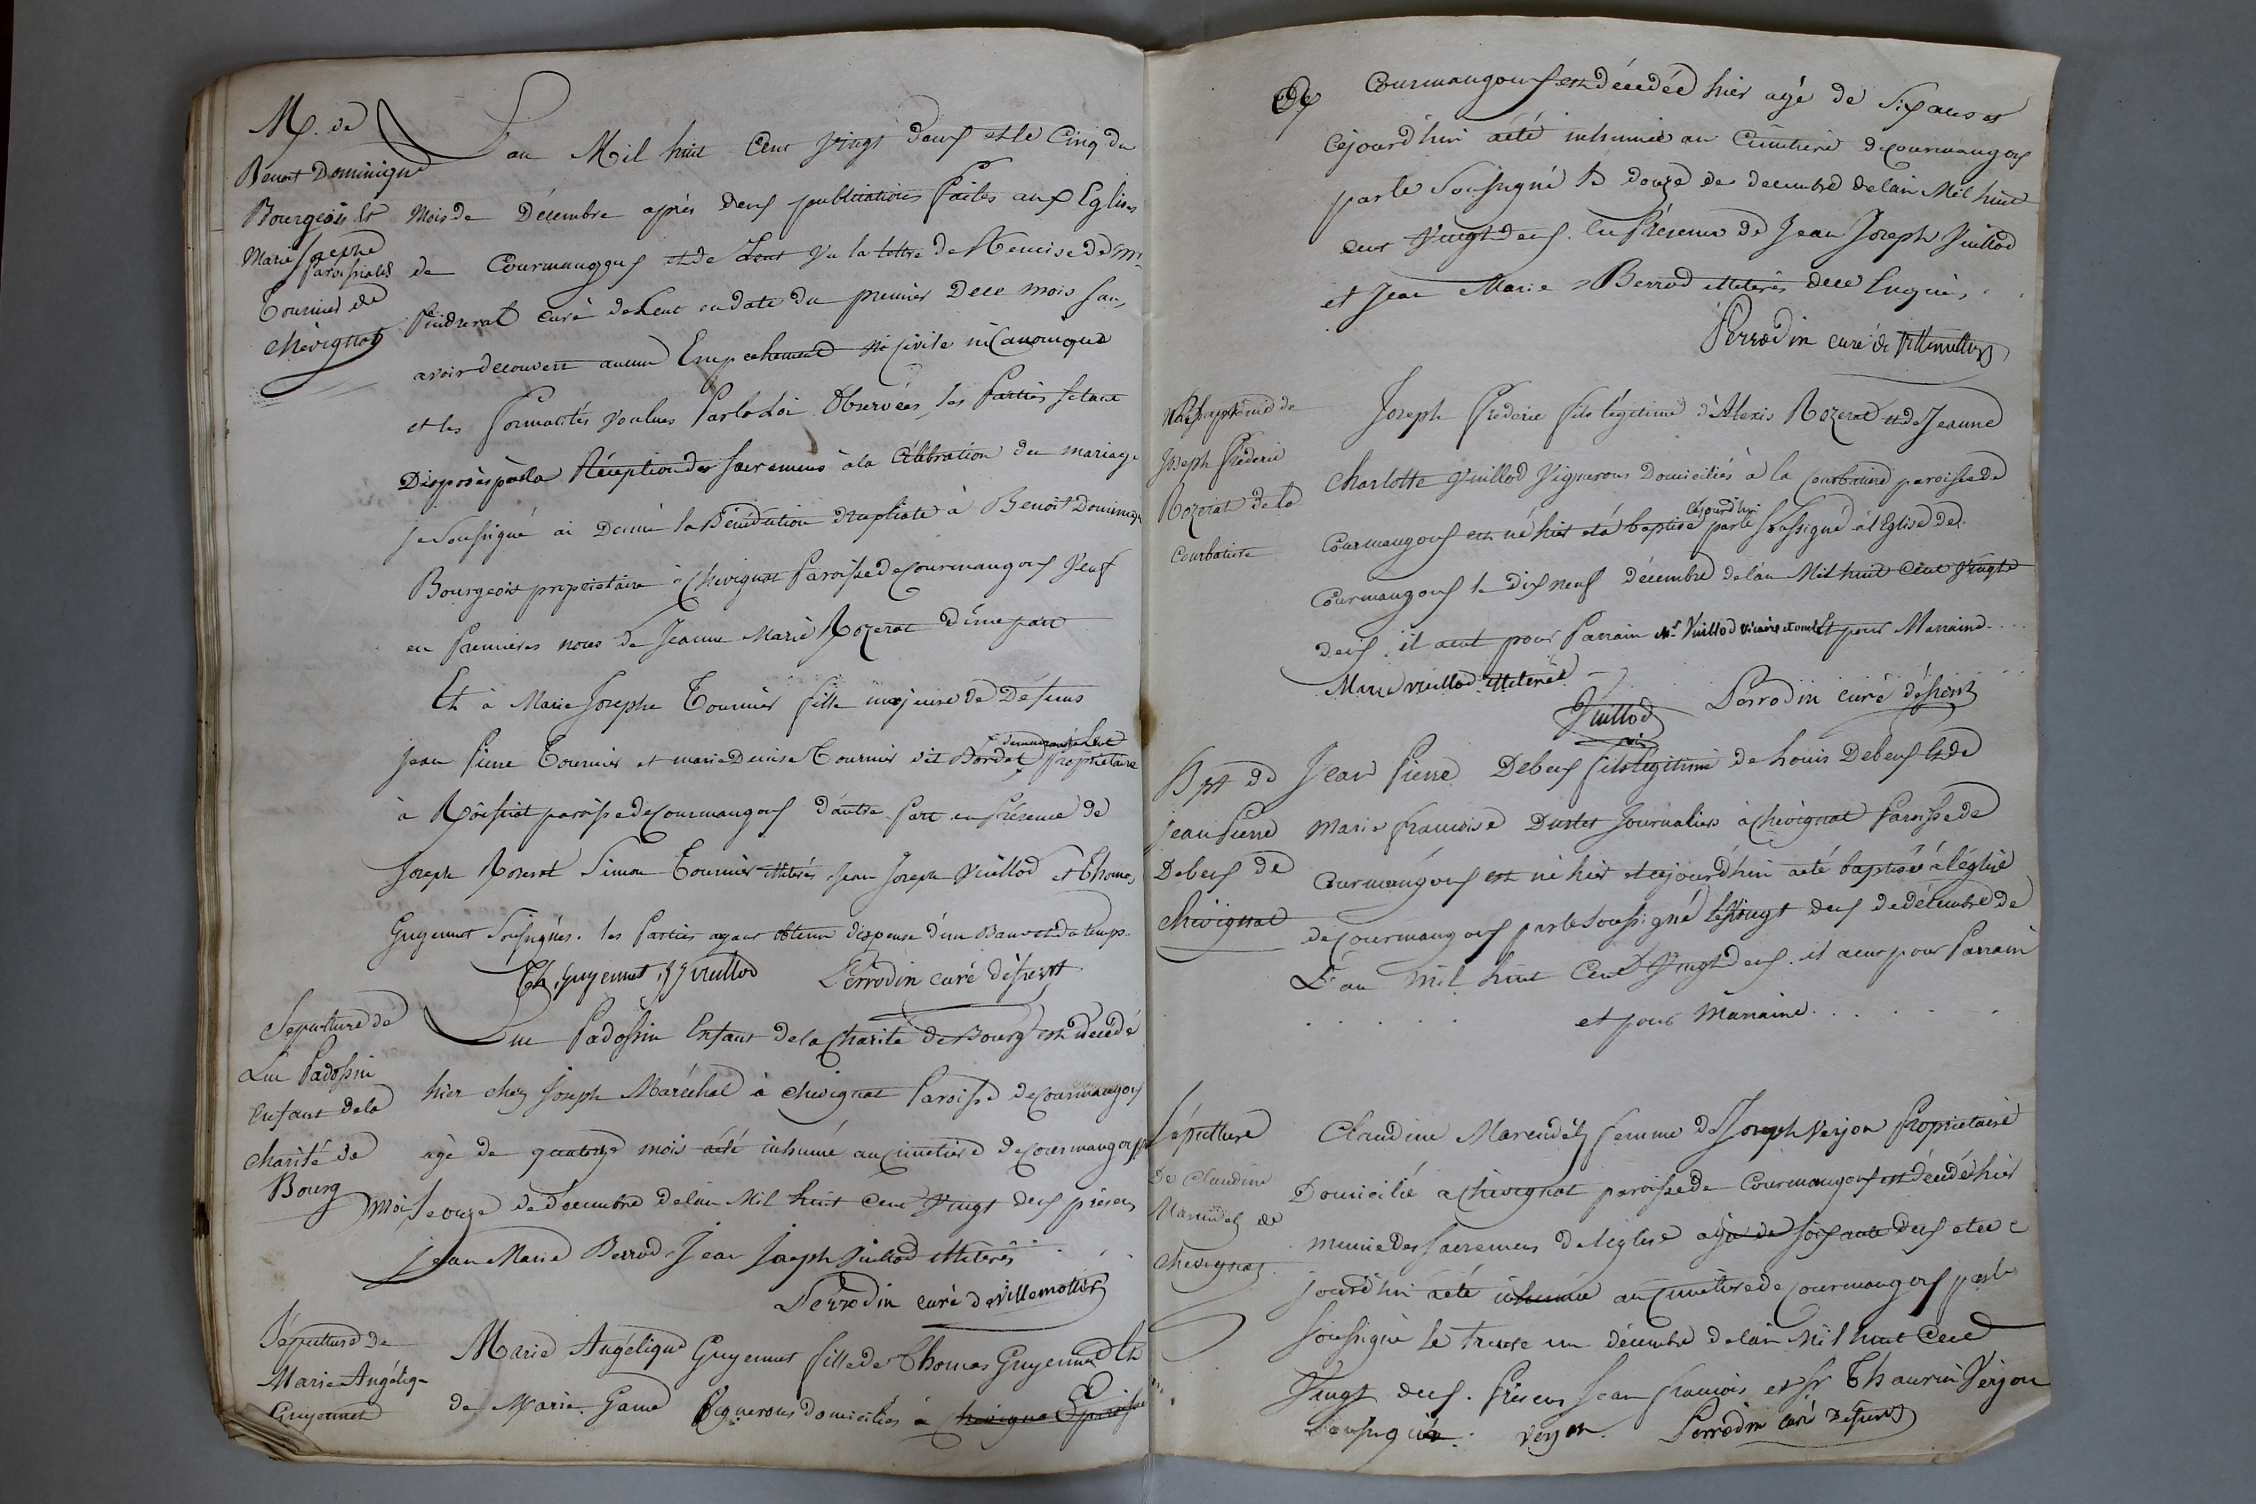 M. de
Benoit Dominique
Bourgeois Et
Marie Josephe
Tournier de
Chevignat
L'an Mil huit Cent Vingt deux et le Cinq du
Mois de Décembre après deux publications faites aux Eglises
paroissiales
de Courmangoux et de Lent Vu la lettre de Remise de Mr
curé de Lent en date du premier Dece mois sans
avoir découvert aucun Empechement ni Civile ni Canonique
et les formalités Voulues Par la Loi Observées, les Parties setant
Disposées par la Réception des Sacremens à la Célébration du mariage
Je Soussigné ai Donné la Bénédiction Nuptiale à Benoit Dominique
Bourgeois propriétaire à Chevignat Paroisse de Courmangoux Veuf
en Premieres noces de Jeanne Marie Rozerat d'une part
Et à Marie Josephe Tournier fille majeure de Défuns
demeurans à Lent
Jean Pierre Tournier et marie Denise Tournier dit Bordat Propriétaire
à Roissiat paroisse de Courmangoux d'autre Part en Présence de
Joseph Rozerat Simon Tournier illiterés Jean Joseph Vuillod et Thomas
Guyennet Soussignés. les Parties ayant obtenu dispense d'un Ban et du temps.
Th Guyennet JJ vuillod Perrodin curé déserv.t
Sepulture de
Luc Padossin
Enfant de la
Charité de
Bourg
Luc Padossin Enfant de la Charité de Bourg est décédé
hier chez Joseph Maréchal à Chevignat Paroisse de Courmangoux
agé de quatorze mois a été inhumé au Cimetière de Courmangoux par
moi le onze de Decembre de l'an Mil huit Cent Vingt deux présens
Jean Marie Berrod Jean Joseph Vuillod illiterés
Perrodin curé de villemotier
Sépulture de
Marie Angéliq-
Guyennet
Marie Angélique Guyennet fille de Thomas Guyennet Et
de Marie Game Vignerons domiciliés à Chevignat Paroisse
de Courmangoux est décédée hier agé de Six ans et
Cejourd'hui a été inhumée au Cimetière de Courmangoux
par le Soussigné le douze de decembre de l'an Mil huit
cent Vingt deux. En Présence de Jean Joseph Vuillod
et Jean Marie Berrod illiterés dece Enquis,
Perrodin curé de Villemotier
Joseph Frederic
Rozerat de la
Courbatiere
Joseph Frederic fils légitime d'Alexis Rozerat et de Jeanne
Charlotte Vuillod Vignerons Domiciliés à la Courbatiere paroisse de
cejourd'hui
Courmangoux est né hier et a été baptisé par le Soussigné à l'Eglise de
Courmangoux le Dix neuf décembre de l'an Mil huit Cent Vingt
deux. il a eut pour Parrain Mr Vuillod vicaire et oncle Et pour Marraine
Marie vuillod illiterée
Vuillod Perrodin curé déserv.t
vic
Bpt de
Jean Pierre
Debeuf de
Chevignat
Jean Pierre Debeuf fils légitime de Louis Debeuf Et de
Marie Francoise Journaliers à Chevignat Paroisse de
Courmangoux est né hier et cejourd'hui a été baptisé à l'église
de Courmangoux par le Soussigné le Vingt deux de décembre de
L'an mil huit Cent Vingt deux. il a eut pour Parrain
et pour Marraine
Sépulture
De Claudine
Marendet de
Chevignat
Claudine Marendet femme de Joseph Verjon Propriétaire
Domicilié à Chevignat paroisse de Courmangoux est décédée hier
munie des Sacremens de l'église agée de soixante deux et ce
jourd'hui a été inhumée au Cimetière de Courmangoux par le
Soussigné le Trente un décembre de l'an Mil huit Cent
Vingt deux. Présens Jean francois et Thaurin Verjon
Soussignés. Verjon. Perrodin curé déserv.t